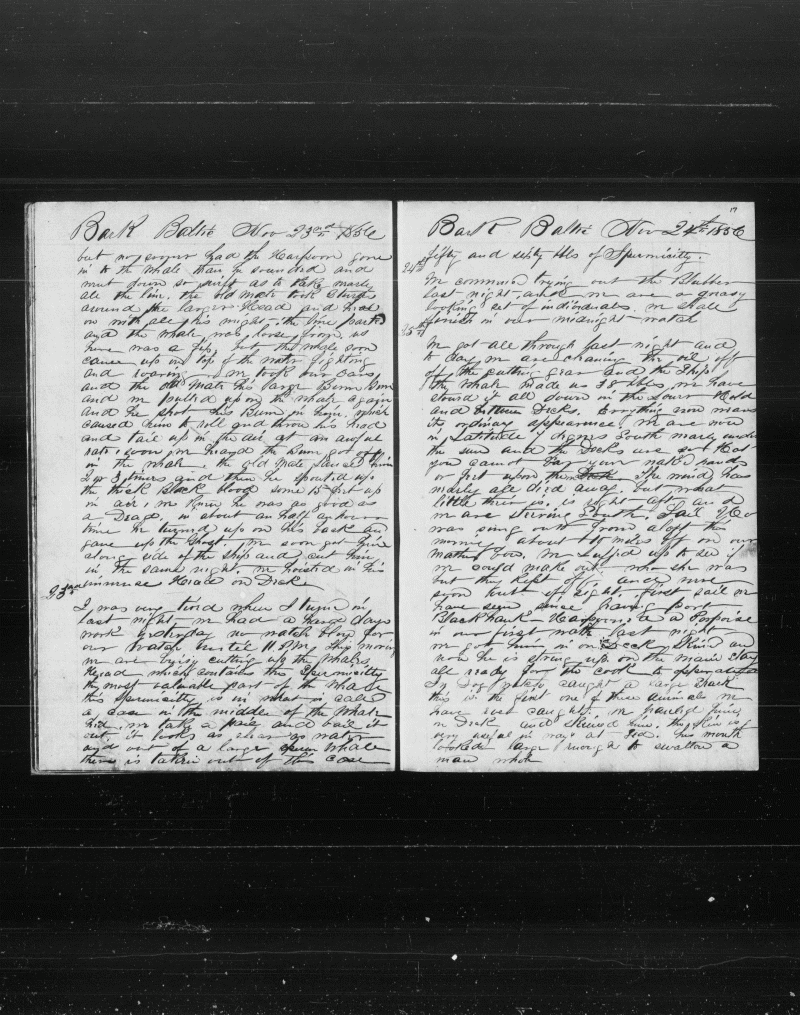 Bark Baltic Nov 23rd 1856
but no sooner had the Harpoon gone
in to the whale than he sounded and
went down so swift as to take nearly
all the line. the old mate took
around the Head and held
on with all his might. the line parted
and the whale was loose from us
here was a fix, but the whale soon
came up on top of the water fighting
and roaring we took our oars,
and the old Mate his large Bum Gun
and we pulled upon the whale again
and he shot his Bum in him. which
caused him to roll and throw his head
and tail up in the air at an awful
rate. soon we heard the Bum go off
in the whale. the old Mate Lanced him
2 or 3 times and then he spouted up
the thick Black blood some 15 feet up
in air, we knew he was as good as
a Dead. in about an half an hour
time he turned up on his back and
gave up the Ghost. We soon got him
along side of the ship and cut him
in the same night. we hoisted in his
immense Head on Deck
23rd
I was very tired when I turned in
last night. we had a hard days
work yesterday no watch below for
our watch until 11 P.M. this morning
we are busy cutting up the whales
Head which contains the Spermicitty
the most valuable part of the whale
this Spermicitty is in what is called
a case in the middle of the whales
Hid. we take a pail and bail it
out, it looks as clear as water
and out of a large sperm whale
there is taken out of the case
17
Bark Baltic Nov 24th 1856
fifty and sixty bbls of Spermicitty.
24th
We commenced trying out the Blubber
last night. and we are a greasy
looking set of individuals. we shall
finish in our midnight watch
25th
We got all through last night and
to day we are cleaning the oil off
of the cutting gear and the Ship.
the whale made us 38 bbls, we have
stowed it all down in the Lower Hold
and Between Decks. Everything now wears
its ordinary appearance. We are now
in Latitude degrees South nearly under
the sun and the Decks are so Hot
you cannot bear your naked hands
or feet upon them. The wind has
nearly all died away, but what
little there is, is right aft and
we are steering South. Sail Ho
was sung out from aloft this
morning about 10 miles off on our
weather bow. We Luffed up to see if
we could make out who she was
but they kept off and were
soon out of sight. first sail we
have seen since leaving port
Black hawk Harpooned a Porpoise
in our first watch last night
we got him in on Deck skined and
now he is strung up on the main stay
all ready for the cook to operate
In Dog watch caught a large Shark
this is the first one of these animals we
have ever caught. We hauled him
on Deck and skined him. the skin is
very useful in ways at Sea. his mouth
looked large enough to swallow a
man whole